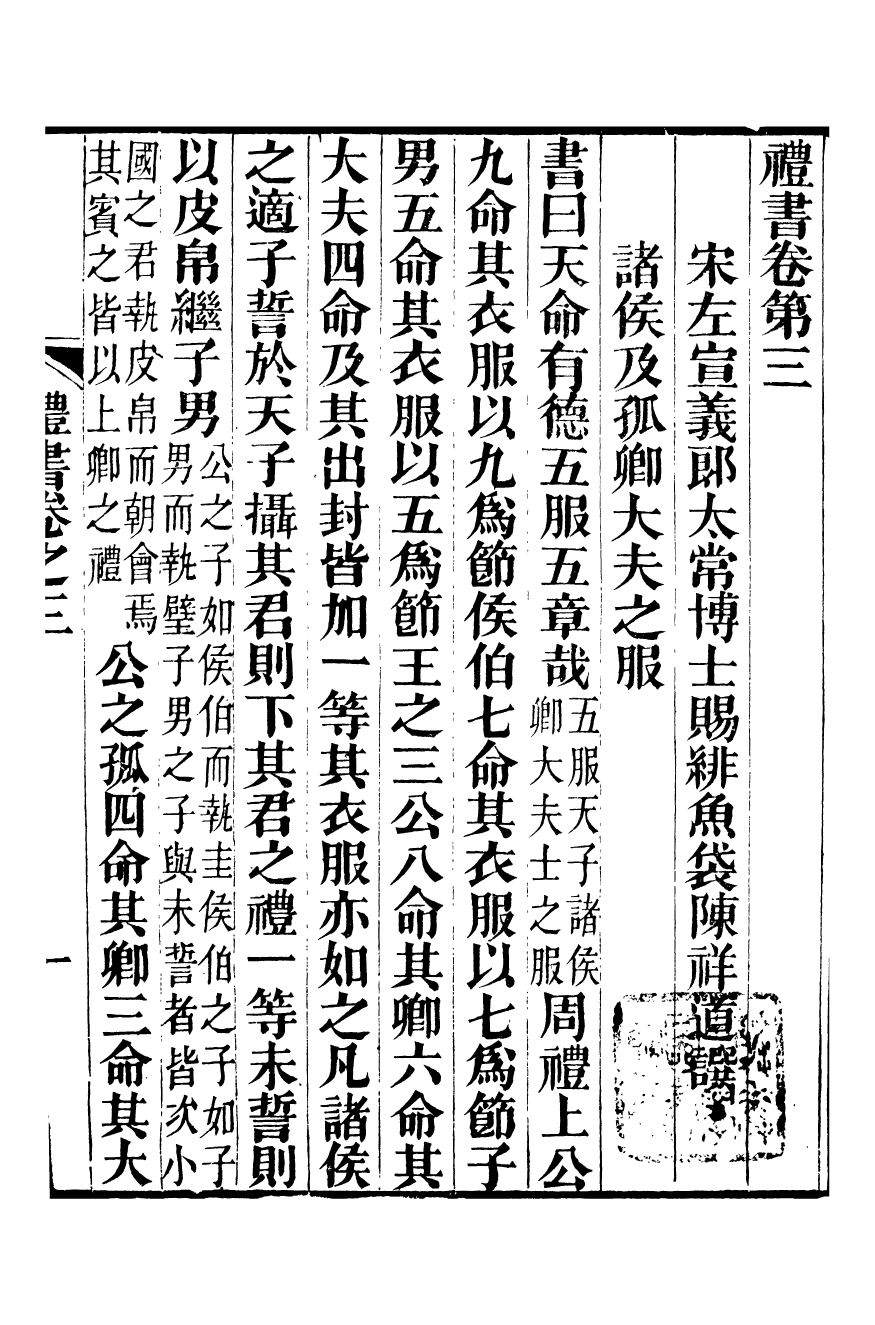 禮書卷第三
宋左宣義郎太常博士賜緋魚袋陳祥道譔
諸侯及孤卿大夫之服
書曰天命有德五服五章哉五服天子諸侯卿大夫士之服周禮上公
九命其衣服以九爲節侯伯七命其衣服以七爲節子
男五命其衣服以五爲節王之三公八命其卿六命其
大夫四命及其出封皆加一等其衣服亦如之凡諸侯
之適子誓於天子攝其君則下其君之禮一等未誓則
以皮帛繼子男公之子如侯伯而執圭侯伯之子如子男而執璧子男之子與未誓者皆次小
國之君執皮帛而朝會焉其賓之皆以上卿之禮公之孤四命其卿三命其大
禮書卷之三
一